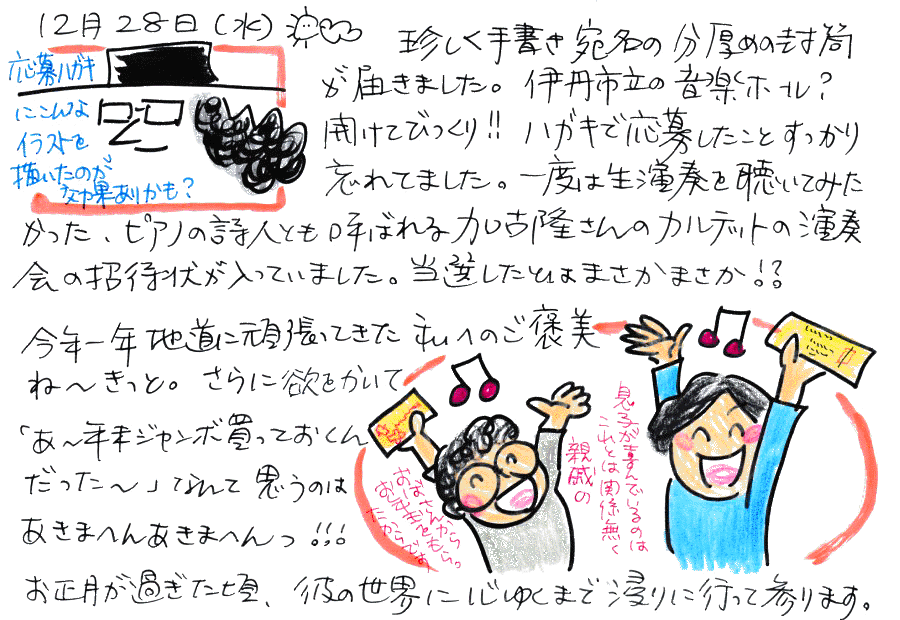 12月28日(水)
応募ハガキ
にこんな
イラストを
描いたのが
効果ありかも?
珍しく手書き宛名の分厚めの封筒
が届きました。伊丹市立の音楽ホール?
開けてびっくり!! ハガキで応募したことすっかり
忘れてました。一度は生演奏を聴いてみた
かった、ピアノの詩人とも呼ばれる加古隆さんのカルテットの演奏
会の招待状が入っていました。当選したとはまさかまさか!?
今年一年地道に頑張ってきた私へのご褒美
ね～きっと。さらに欲をかいて
「あ～年末ジャンボ買っておくん
だった～」なんて思うのは
あきまへんあきまへんっ!!!
お正月が過ぎた頃、彼の世界にじじゅくまで浸りに行って参ります。
おばさんから
お年玉をもらっ
たからです。
親戚の
息子が喜んでいるのは
これとは関係無く